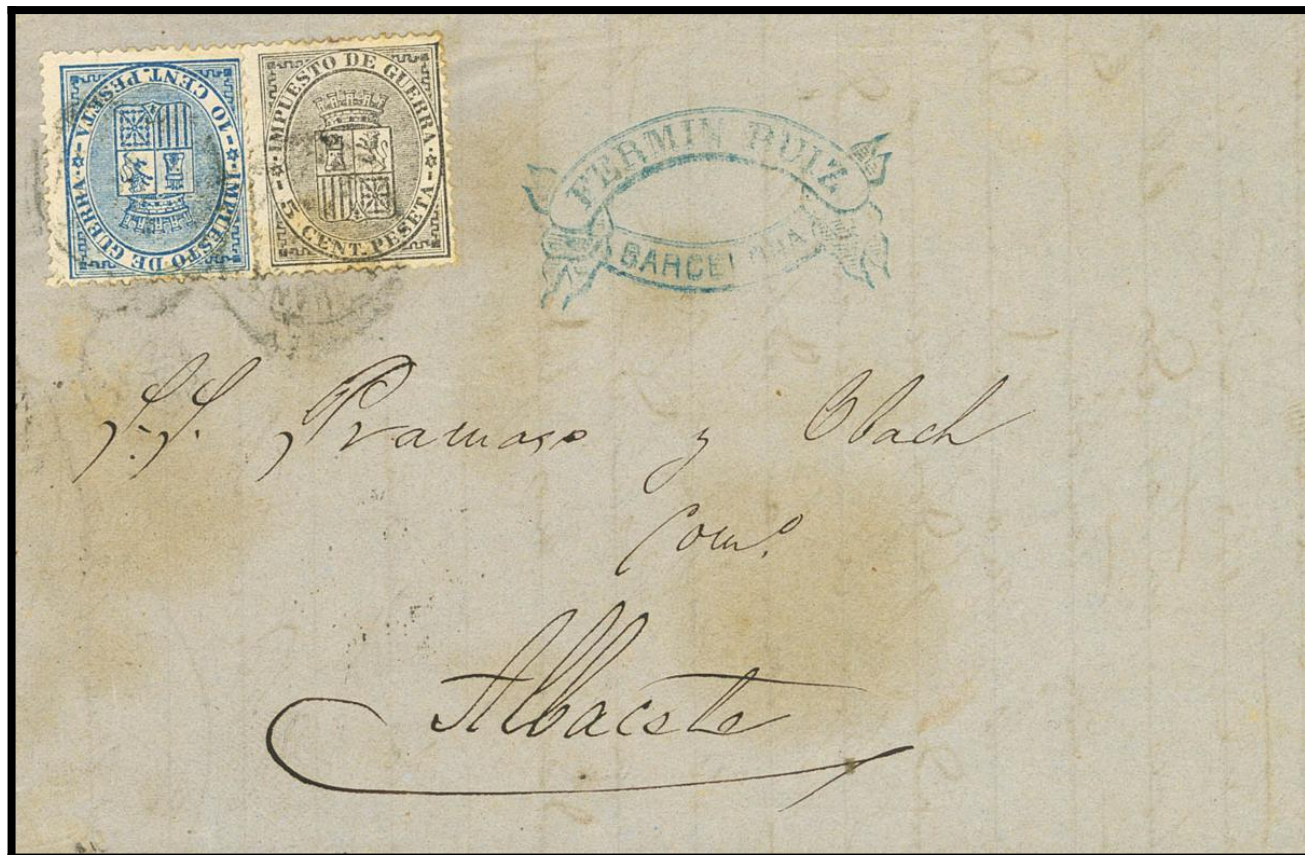 IMPUESTO DE GUERRA
10 CENT. PESETA
IMPUESTO DE GUERRA
5 CENT. PESETA
FERMIN RUIZ
BARCELONA
S.S. y Obach
Com.º
Albacete